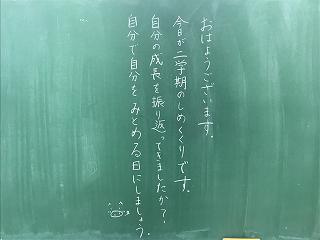 おはようございます。
今日が二学期のしめくくりです。
自分の成長を振り返ってきましたか？
自分で自分をみとめる日にしましょう。